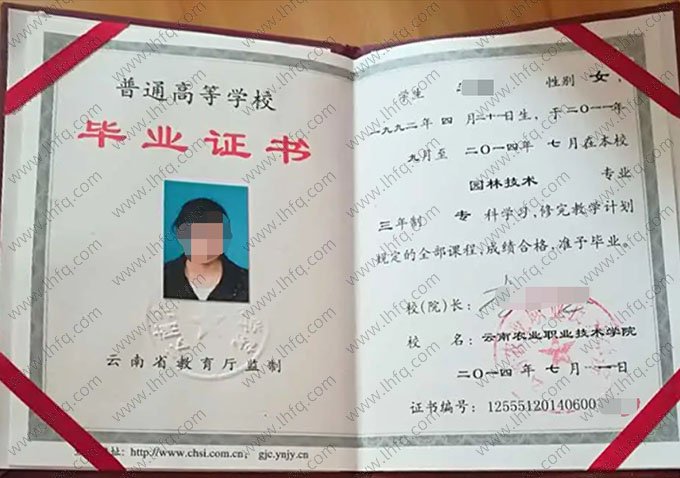 普通高等学校
毕业证书
云南省教育厅监制
网址: http://www.chsi.com.cn, gjc.ynjy.cn
学生 性别 女,
一九九二年 四 月二十日生,于二〇一一年
九月至 二〇一四年 七月在本校
园林技术 专业
三年制 专 科学习,修完教学计划
规定的全部课程,成绩合格,准予毕业。
校(院)长:
校 名: 云南农业职业技术学院
二〇一四年 七 月 一日
证书编号: 12555120140600
www.lhfq.com